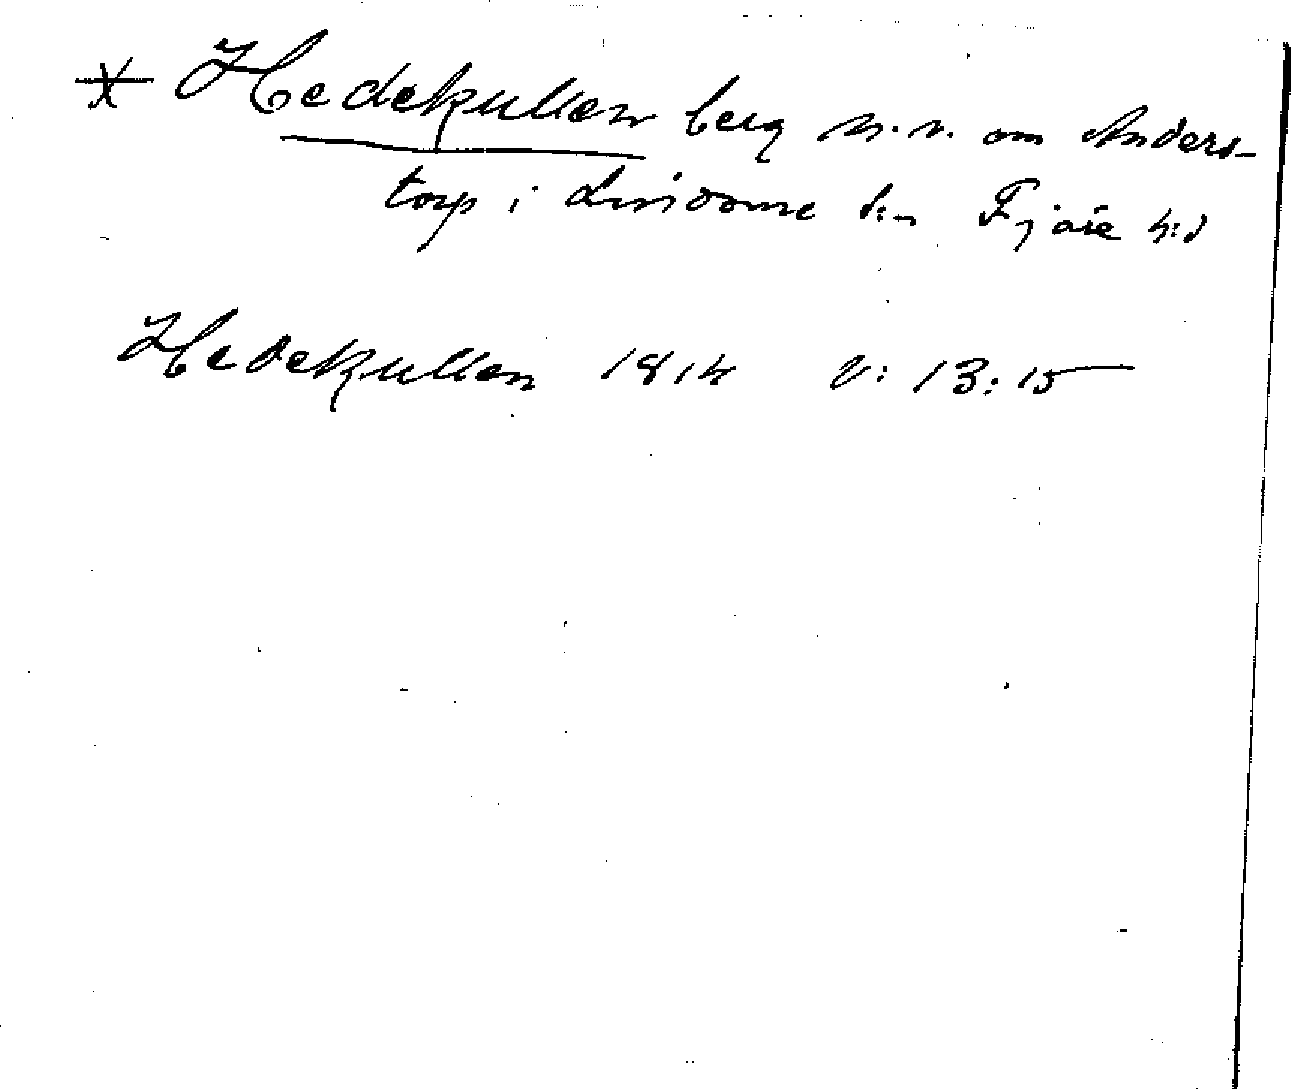 * Hedekullen berg n.v. om Anders-
torp i Lindome s:n Fjäre h:d
Hedekullen 1814 V: 13: 15